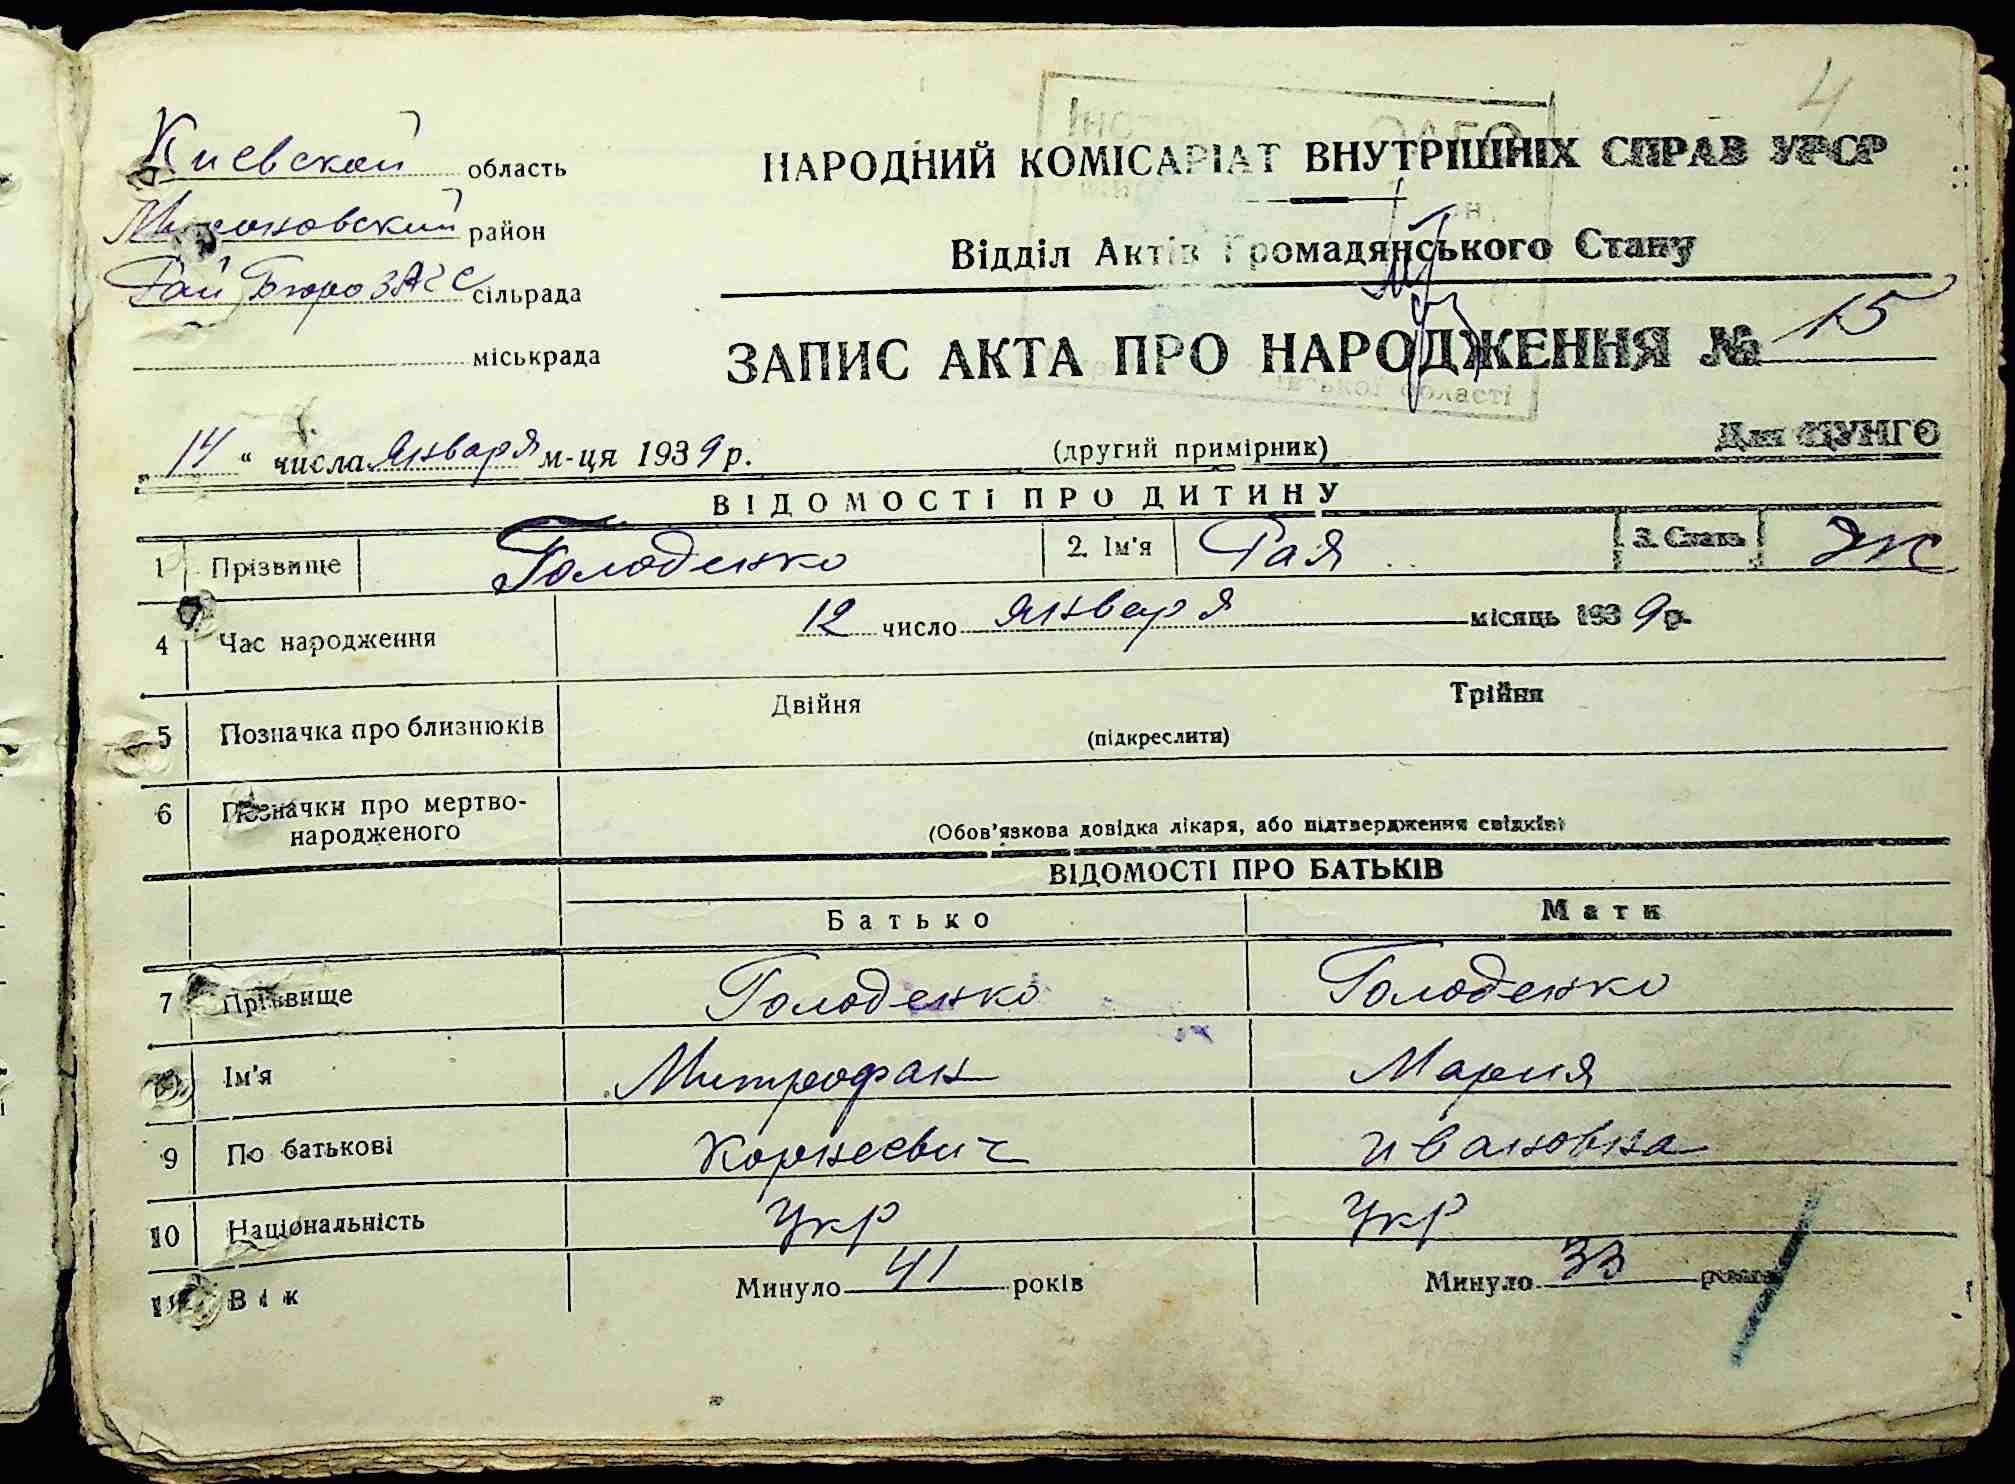 4
Киевской область
НАРОДНИЙ КОМІСАРІАТ ВНУТРІШНІХ СПРАВ УРСР
Мироновский район
Відділ Актів Громадянського Стану
Рай Бюро ЗАГС сільрада
міськрада
ЗАПИС АКТА ПРО НАРОДЖЕННЯ № 15
області
„14“ числа января м-ця 1939 р.
(другий примірник)
Для ЦУНГО
ВІДОМОСТІ ПРО ДИТИНУ
1 Прізвище Голоденко 2. Ім'я Рая 3. Стать Ж
4 Час народження 12 число января місяць 1939 р.
5 Позначка про близнюків Двійня Трійня
(підкреслити)
6 Позначки про мертво-
народженого
(Обов'язкова довідка лікаря, або підтвердження свідків)
ВІДОМОСТІ ПРО БАТЬКІВ
Батько Мати
7 Прізвище Голоденко Голоденко
Ім'я Митрофан Мария
9 По батькові Корнеевич Ивановна
10 Національність Укр Укр
11 Вік Минуло 41 років Минуло 33 років